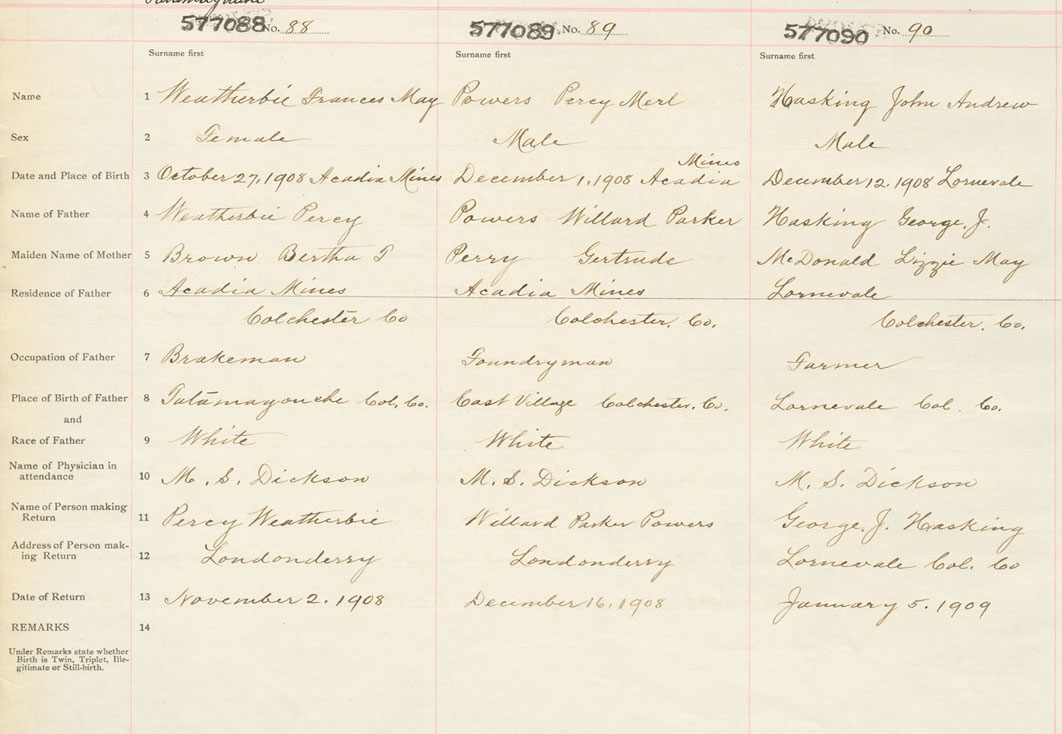 577088 No. 88 577089 No. 89 577090 No. 90
Surname first Surname first Surname first
Name 1 Weatherbie Frances May Powers Percy Merl Hasking John Andrew
Sex 2 Female Male Male
Mines
Date and Place of Birth 3 October 27, 1908 Acadia Mines December 1, 1908 Acadia December 12, 1908 Lornevale
Name of Father 4 Weatherbie Percy Powers Willard Parker Hasking George. J.
Maiden Name of Mother 5 Brown Bertha T Perry Gertrude McDonald Lizzie May
Residence of Father 6 Acadia Mines Acadia Mines Lornevale
Colchester Co Colchester. Co. Colchester. Co.
Occupation of Father 7 Brakeman Foundryman Farmer
Place of Birth of Father 8 Tatamagouche Col. Co. East Village Colchester. Co. Lornevale Col. Co.
and
Race of Father 9 White White White
Name of Physician in
attendance 10 M. S. Dickson M. S. Dickson M. S. Dickson
Name of Person making
Return 11 Percy Weatherbie Willard Parker Powers George. J. Hasking
Address of Person mak-
ing Return 12 Londonderry Londonderry Lornevale Col. Co
Date of Return 13 November 2. 1908 December 16, 1908 January 5. 1909
REMARKS 14
Under Remarks state whether
Birth is Twin, Triplet, Ille-
gitimate or Still-birth.